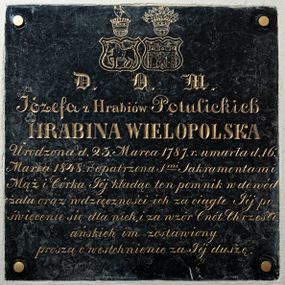 D. O. M.
Józefa z Hrabiów Potulickich
HRABINA WIELOPOLSKA
Urodzona d. 23. Marca 1787. r. umarła d. 16.
Marca 1848. r. opatrzona Smi Sakramentami
Mąż i Córka Jéj kładąc ten pomnik w dowód
żalu oraz wdzięczności ich za ciągłe Jéj po
święcenie się dla nich, za wzór Cnót Chrześci
ańskich im zostawiony
proszą o westchnienie za Jéj duszę.